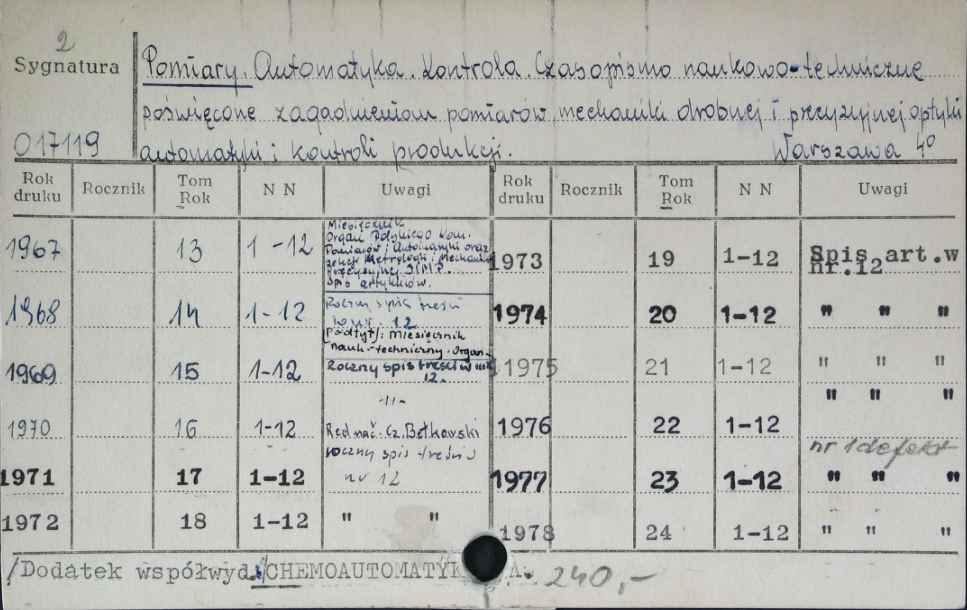 2
Sygnatura
Pomiary. Automatyka. Kontrola. Czasopismo naukowo-techniczne
poświęcone zagadnieniom pomiarów, mechaniki drobnej i precyzyjnej optyki
017119 automatyki i kontroli produkcji. Warszawa 4º
Rok druku Rocznik Tom Rok N N Uwagi Rok druku Rocznik Tom Rok N N Uwagi
1967 13 1-12
Miesięcznik
Organ Polskiego Kom.
Pomiarów i Automatyki oraz
Sekcji Metrologii i Mechaniki
Precyzyjnej SIMP.
Spis artykułów.
1968 14 1-12
Roczny spis treści
12
(Podtyt): Miesięcznik
nauk-techniczny. Organ
1969 15 1-12
Roczny spis treści w nr
12.
-"-
1970 16 1-12
Red nacz. Cz. Betkowski
roczny spis treści
1971 17 1-12 nr 12
1972 18 1-12 " "
1973 19 1-12 Spis art.w
nr.12
1974 20 1-12 " " "
1975 21 1-12 " " "
1976 22 1-12 " " "
nr 1 defekt
1977 23 1-12 " " "
1978 24 1-12 " " "
/Dodatek współwyd. CHEMOAUTOMATYK A. 240,-